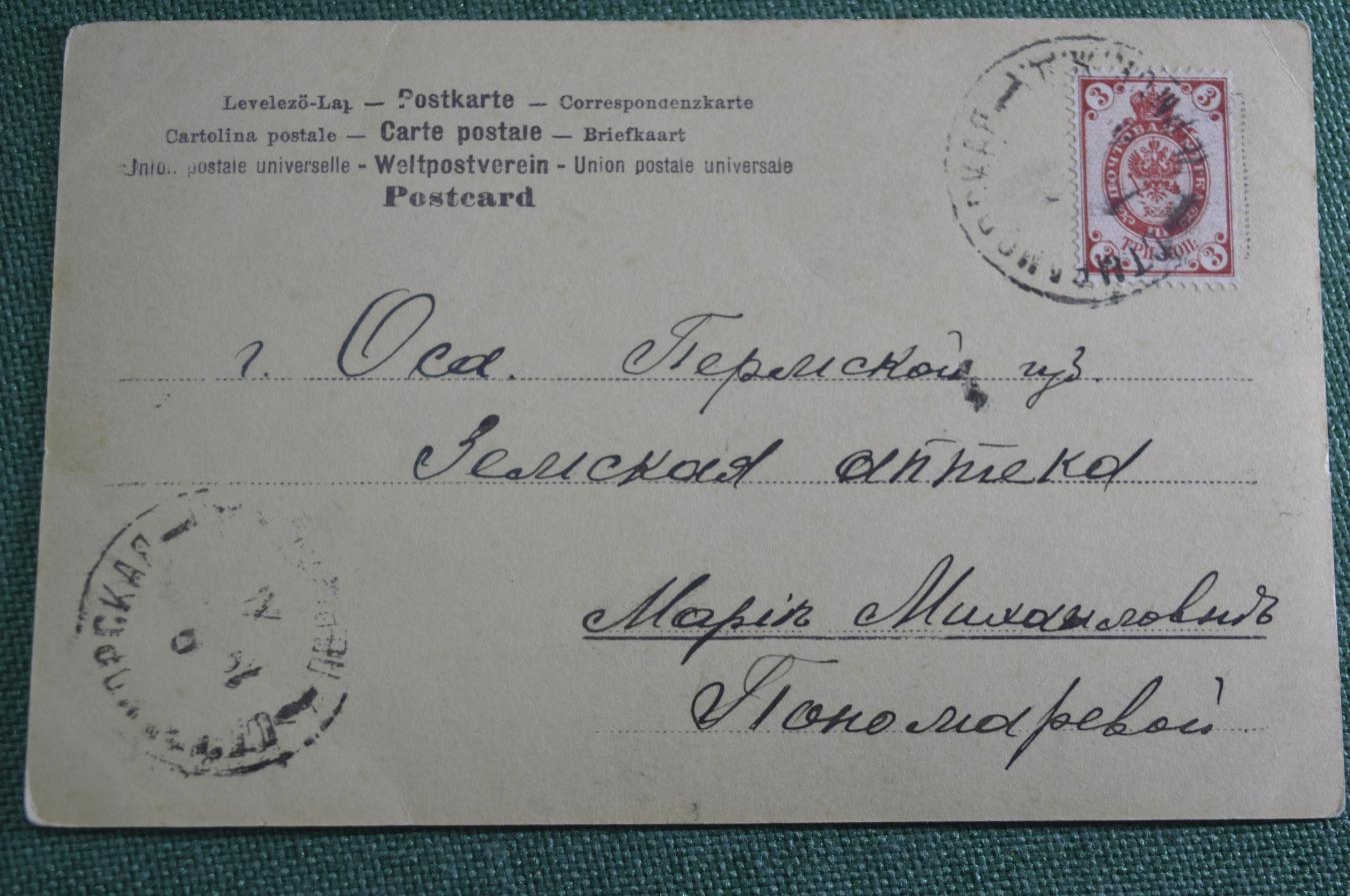 Levelező-Lap — Postkarte — Correspondenzkarte
Cartolina postale — Carte postale — Briefkaart
Union postale universelle - Weltpostverein - Union postale universale
Postcard
3 3
ПОЧТОВАЯ МАРКА
ТРИ КОП.
3 3
г. Оса. Пермской губ.
Земская аптека
Маріѣ Михаиловнѣ
Пономаревой